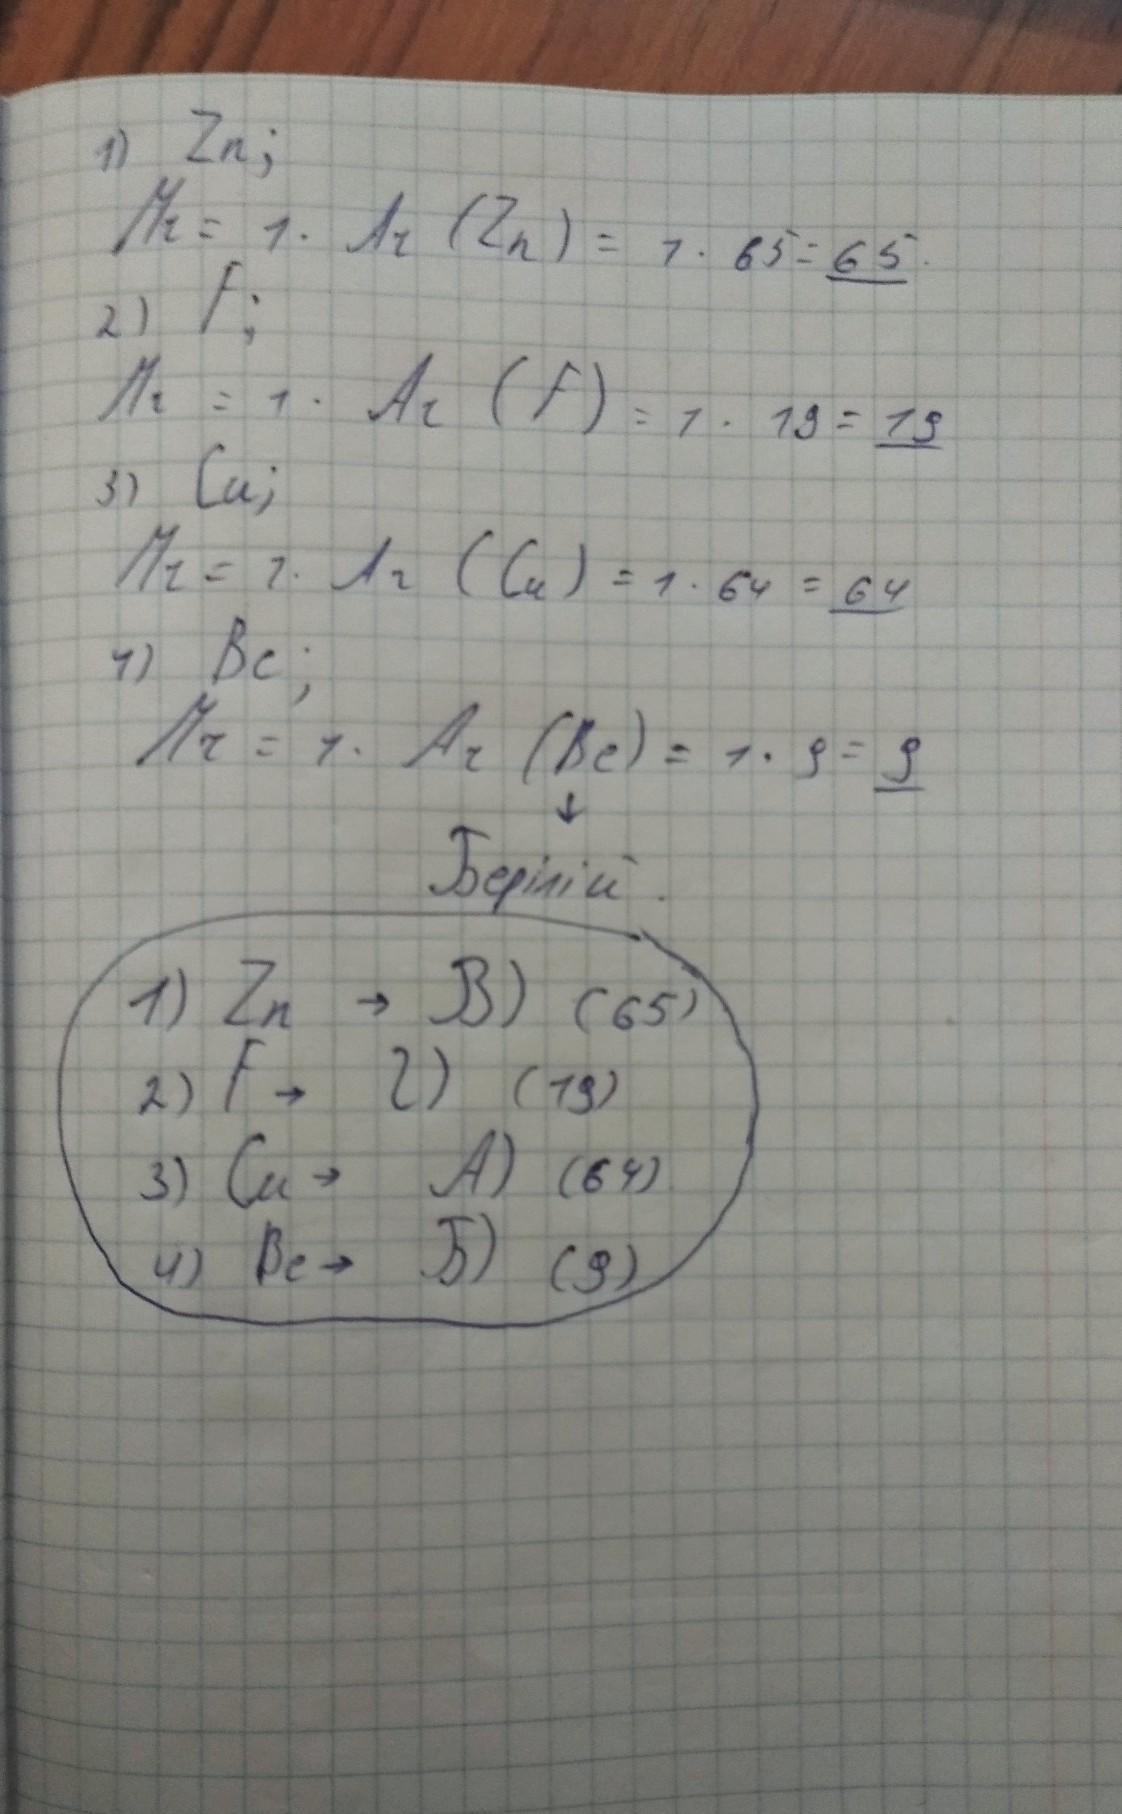 1) Zn;
Mr = 1 · Ar (Zn) = 1 · 65 = 65.
2) F;
Mr = 1 · Ar (F) = 1 · 19 = 19
3) Cu;
Mr = 1 · Ar (Cu) = 1 · 64 = 64
4) Be;
Mr = 1 · Ar (Be) = 1 · 9 = 9
↓
Берілій.
1) Zn → В) (65)
2) F → Г) (19)
3) Cu → А) (64)
4) Be → Б) (9)